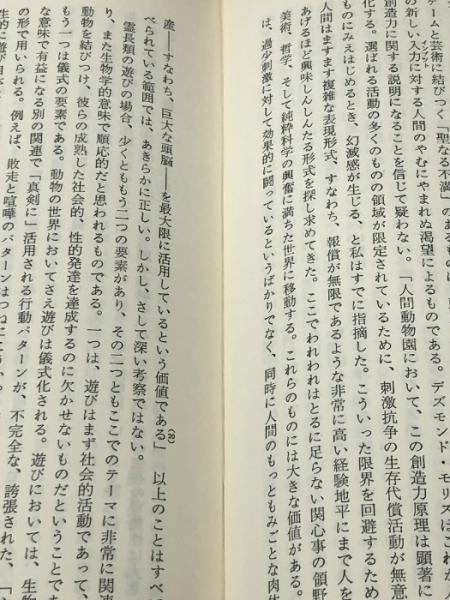 ゲームと芸術に結びつく「聖なる不満」のあるものは
の新しい入力インプットに対する人間のやむにやまれぬ渇望によるものである。デズモンド・モリスはこれが人
創造力に関する説明になることを信じて疑わない。「人間動物園において、この創造力原理は顕著に
化する。選ばれる活動の多くのものの領域が限定されているために、刺激抗争の生存代償活動が無意
ものにみえはじめるとき、幻滅感が生じる、と私はすでに指摘した。こういった限界を回避するため
人間はますます複雑な表現形式、すなわち、報償が無限であるような非常に高い経験地平にまで人を
あげるほど興味しんしんたる形式を探し求めてきた。ここでわれわれはとるに足らない関心事の領野
美術、哲学、そして純粋科学の興奮に満ちた世界に移動する。これらのものには大きな価値がある。
は、過少刺激に対して効果的に闘っているというばかりでなく、同時に人間のもっともみごとな肉体
産――すなわち、巨大な頭脳――を最大限に活用しているという価値である」(R) 以上のことはすべ
べられている範囲では、あきらかに正しい。しかし、さして深い考察ではない。
霊長類の遊びの場合、少くとももう二つの要素があり、その二つともここでのテーマに非常に関連
り、また生物学的意味で順応的だと思われるものである。一つは、遊びはまず社会的活動であって、
動物を結びつけ、彼らの成熟した社会的、性的発達を達成するのに欠かせないものだということであ
もう一つは儀式の要素である。動物の世界においてさえ遊びは儀式化される。遊びにおいては、生物
な意味で有益になる別の関連で「真剣に」活用される行動パターンが、不完全な、誇張された、「
の形で用いられる。例えば、敗走と喧嘩のパターンはつねに
性的に遊び